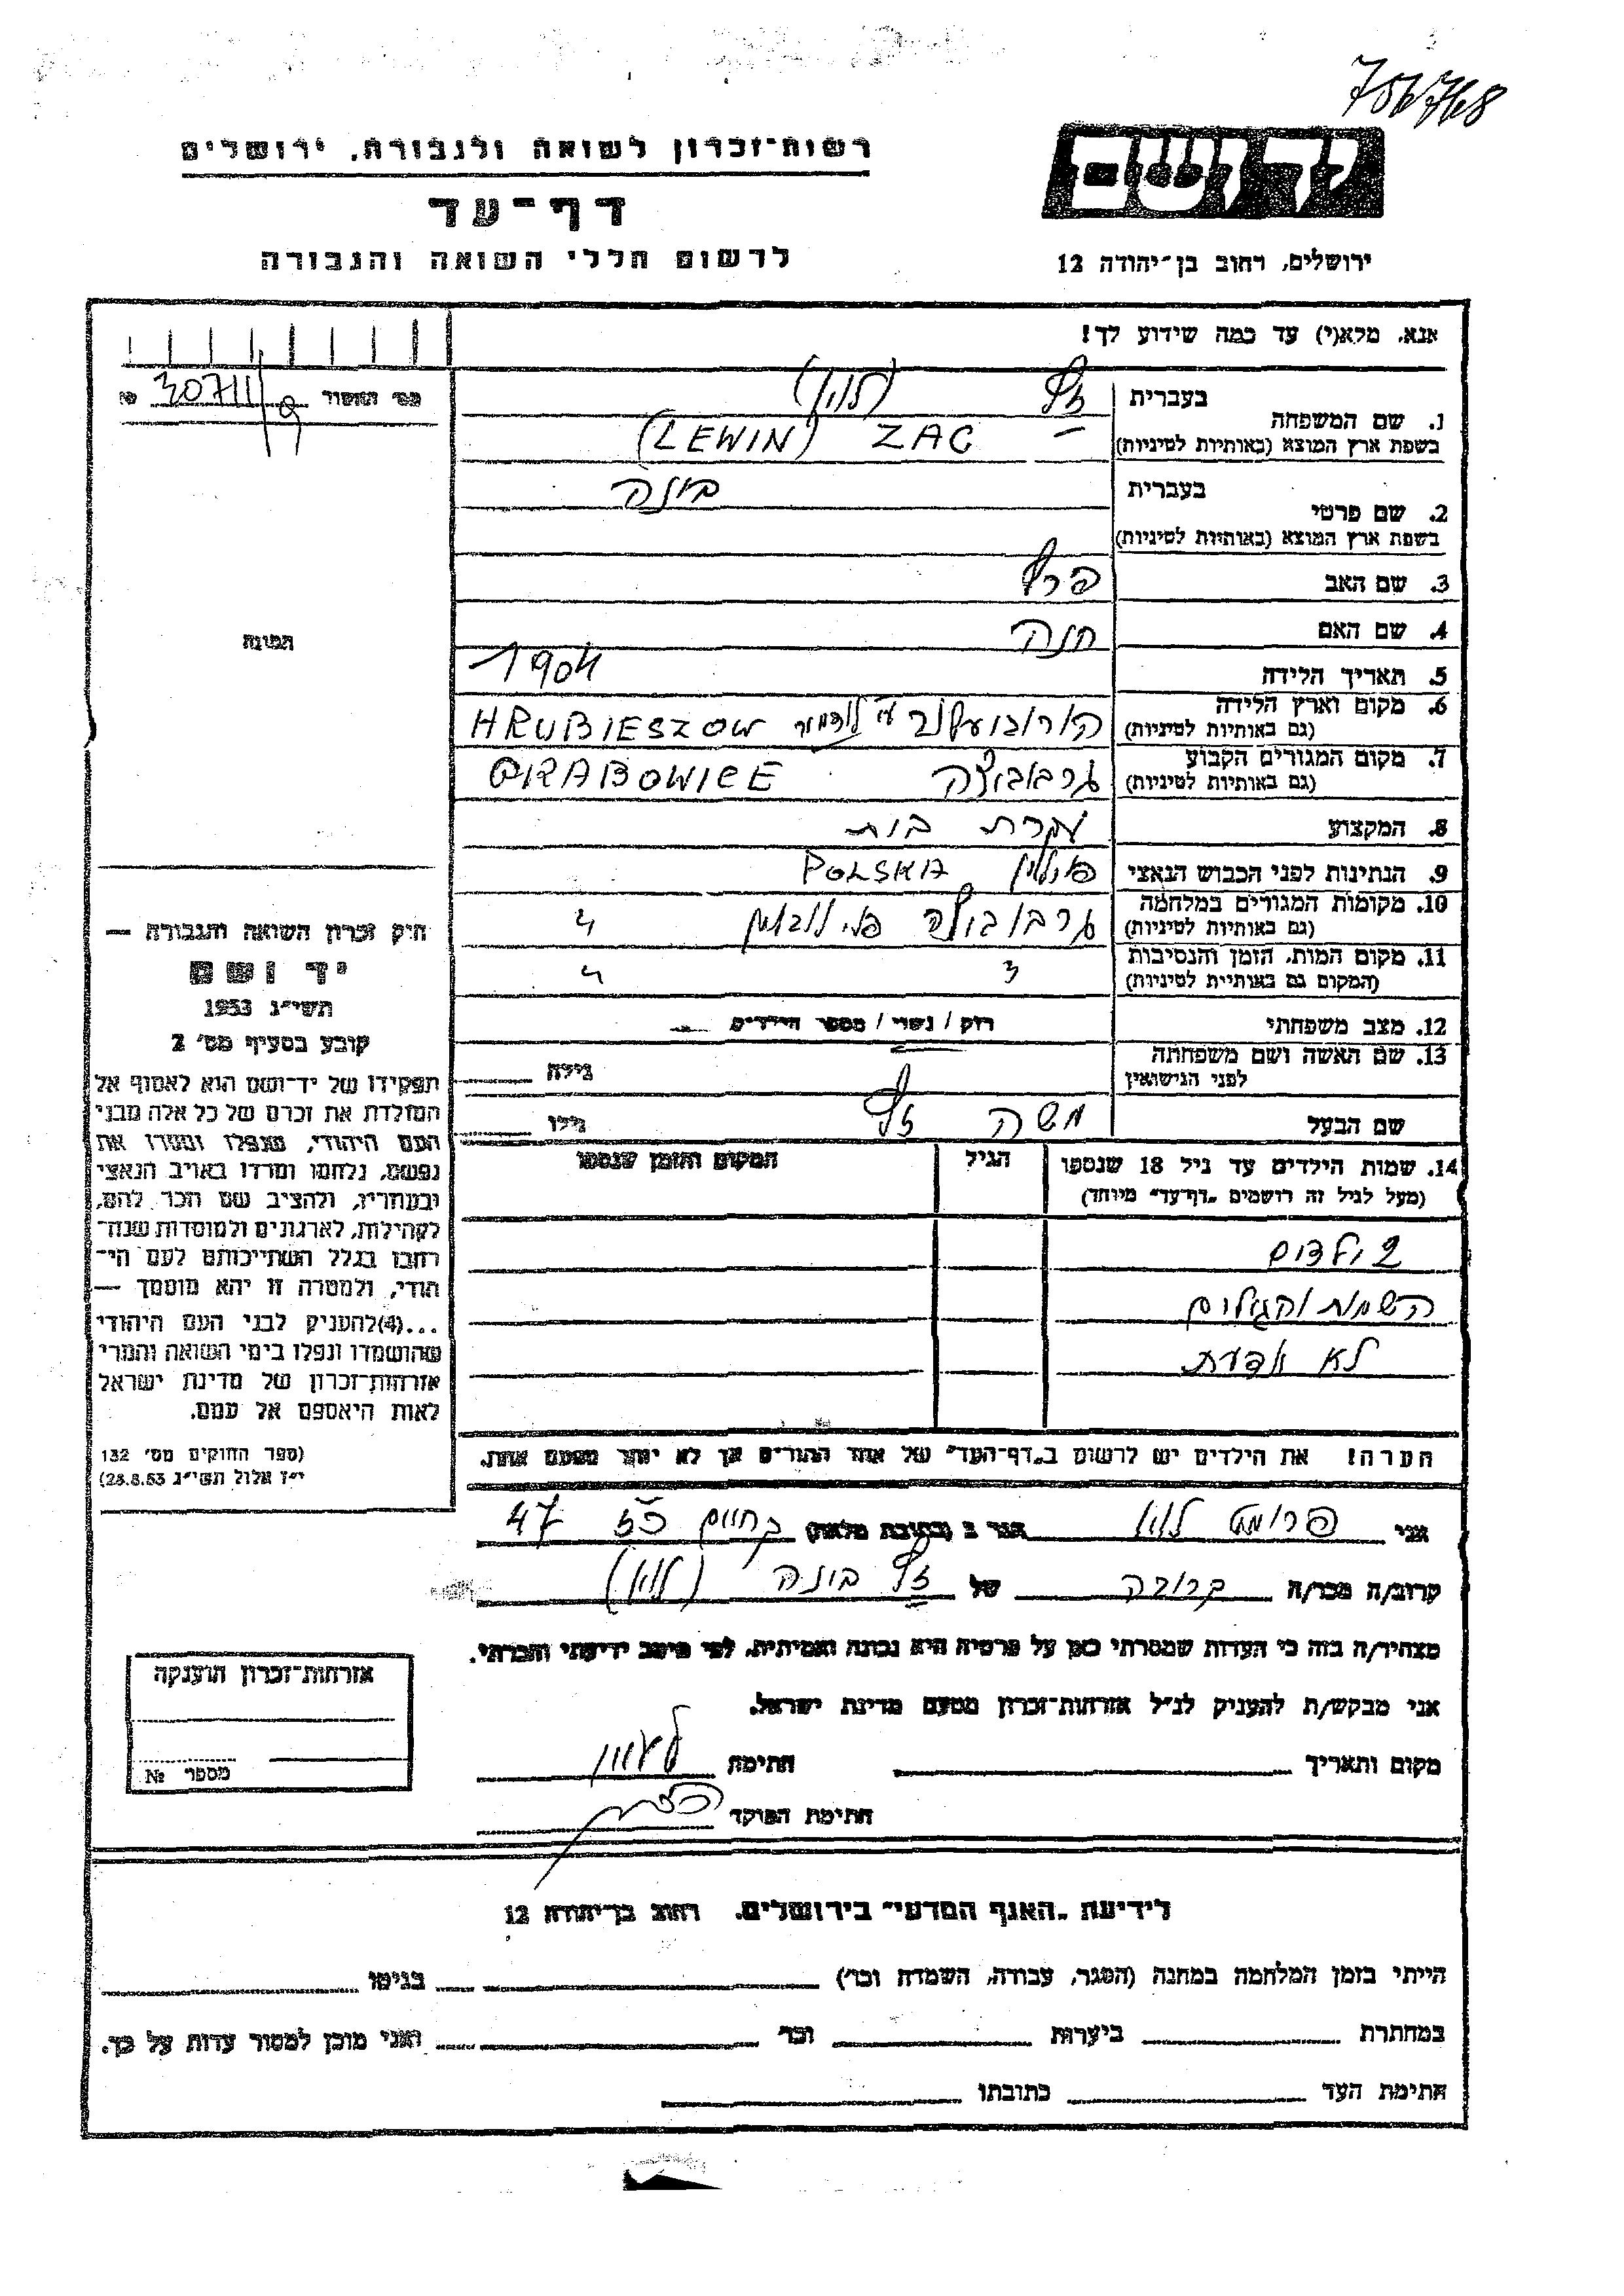 756768
רשות־זכרון לשואה ולגבורה, ירושלים
דף־עד
לרשום חללי השואה והגבורה
יד ושם
ירושלים, רחוב בן־יהודה 12
אנא, מלא(י) עד כמה שידוע לך!
30711/9 №
1. שם המשפחה
בעברית זץ (לוין)
בשפת ארץ המוצא (באותיות לטיניות) ZAC (LEWIN)
2. שם פרטי
בעברית בינה
בשפת ארץ המוצא (באותיות לטיניות)
3. שם האב פרץ
4. שם האם חנה
5. תאריך הלידה 1904
6. מקום וארץ הלידה HRUBIESZOW
(גם באותיות לטיניות)
7. מקום המגורים הקבוע גרבוביצה GRABOWICE
(גם באותיות לטיניות)
8. המקצוע עקרת בית
9. הנתינות לפני הכבוש הנאצי פולין POLSKA
10. מקומות המגורים במלחמה
(גם באותיות לטיניות)
11. מקום המות, הזמן והנסיבות
(המקום גם באותיות לטיניות)
12. מצב משפחתי רוק / נשוי / מספר הילדים
13. שם האשה ושם משפחתה
לפני הנישואין גילה
שם הבעל משה זץ גילו
14. שמות הילדים עד גיל 18 שנספו הגיל המקום והזמן שנספו
(מעל לגיל זה רושמים „דף־עד״ מיוחד)
2 ילדים
השמות והגילים
לא יודעת
הערה! את הילדים יש לרשום ב„דף־העד״ של אחד ההורים אך לא יותר מפעם אחת.
התמונה
חוק זכרון השואה והגבורה —
יד ושם
תשי״ג 1953
קובע בסעיף מס׳ 2
תפקידו של יד־ושם הוא לאסוף אל
המולדת את זכרם של כל אלה מבני
העם היהודי, שנפלו ומסרו את
נפשם, נלחמו ומרדו באויב הנאצי
ובעוזריו, ולהציב שם וזכר להם,
לקהילות, לארגונים ולמוסדות שנח־
רבו בגלל השתייכותם לעם הי־
הודי, ולמטרה זו יהא מוסמך —
...(4) להעניק לבני העם היהודי
שהושמדו ונפלו בימי השואה והמרי
אזרחות־זכרון של מדינת ישראל
לאות היאספם אל עמם.
(ספר החוקים מס׳ 132
י״ז אלול תשי״ג 28.8.53)
אני פרומט לוין הגר ב (כתובת מלאה) 47
קרוב/ה מכר/ה קרובה של זץ בינה (לוין)
מצהיר/ה בזה כי העדות שמסרתי כאן על פרטיה היא נכונה ואמיתית, לפי מיטב ידיעתי והכרתי.
אני מבקש/ת להעניק לנ״ל אזרחות־זכרון מטעם מדינת ישראל.
מקום ותאריך חתימה
חתימת הפוקד
אזרחות־זכרון הוענקה
מספר №
לידיעת „האגף המדעי״ בירושלים, רחוב בן־יהודה 12
הייתי בזמן המלחמה במחנה (הסגר, עבודה, השמדה וכו׳) בגיטו
במחתרת ביערות וכו׳ ואני מוכן למסור עדות על כך.
חתימת העד כתובתו